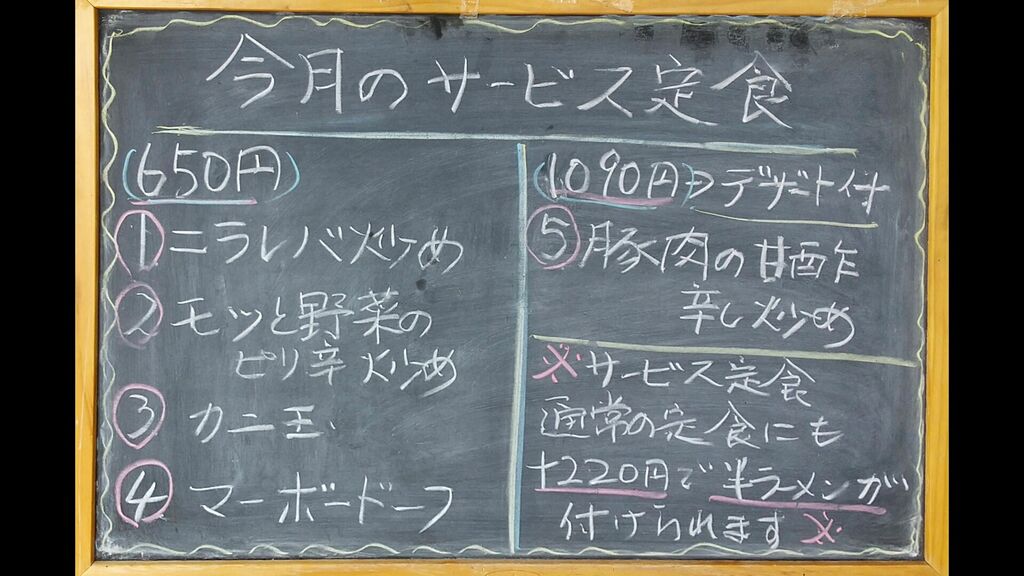 今月のサービス定食
(650円)
① ニラレバ炒め
② モツと野菜の
ピリ辛炒め
③ カニ玉
④ マーボードーフ
(1090円)⇒デザート付
⑤ 豚肉の甘酢
辛し炒め
※サービス定食
通常の定食にも
+220円で半ラーメンが
付けられます※